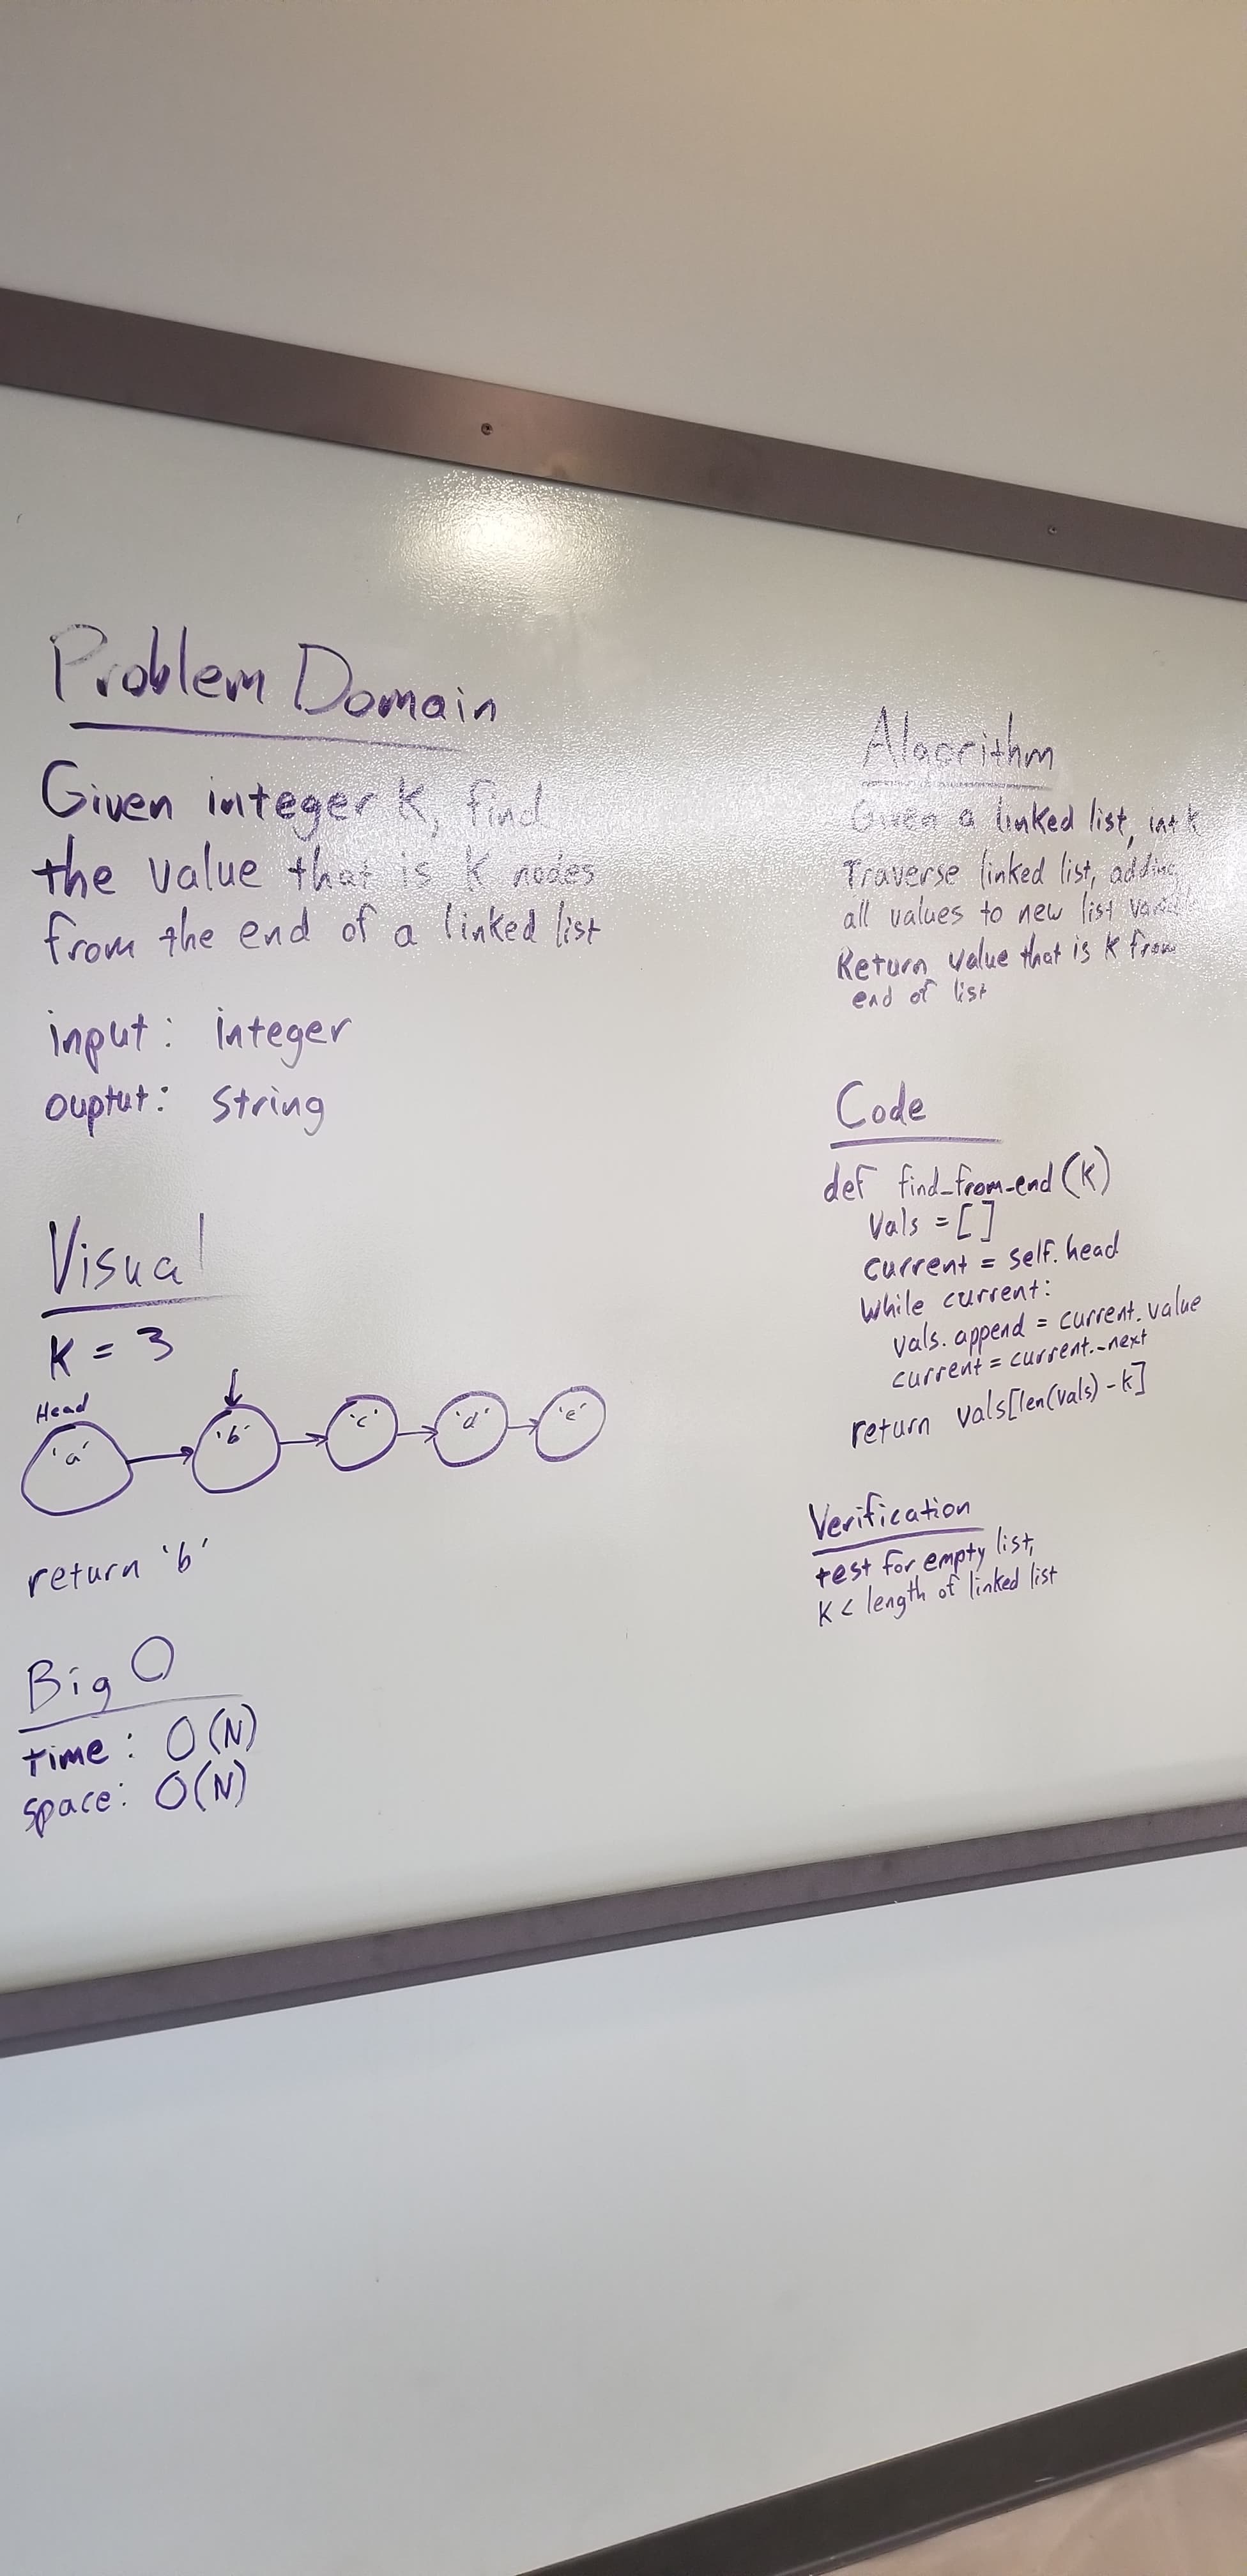 Problem Domain
Given integer K, find
the value that is K nodes
from the end of a linked list
input: integer
ouptut: string
Visual
K = 3
Head
'a' 'b' 'c' 'd' 'e'
return 'b'
Big O
time: O(N)
space: O(N)
Algorithm
Given a linked list, int k
Traverse linked list, adding
all values to new list
Return value that is K from
end of list
Code
def find_from_end(K)
vals = []
current = self.head
while current:
vals.append = current.value
current = current._next
return vals[len(vals) - k]
Verification
test for empty list,
K < length of linked list